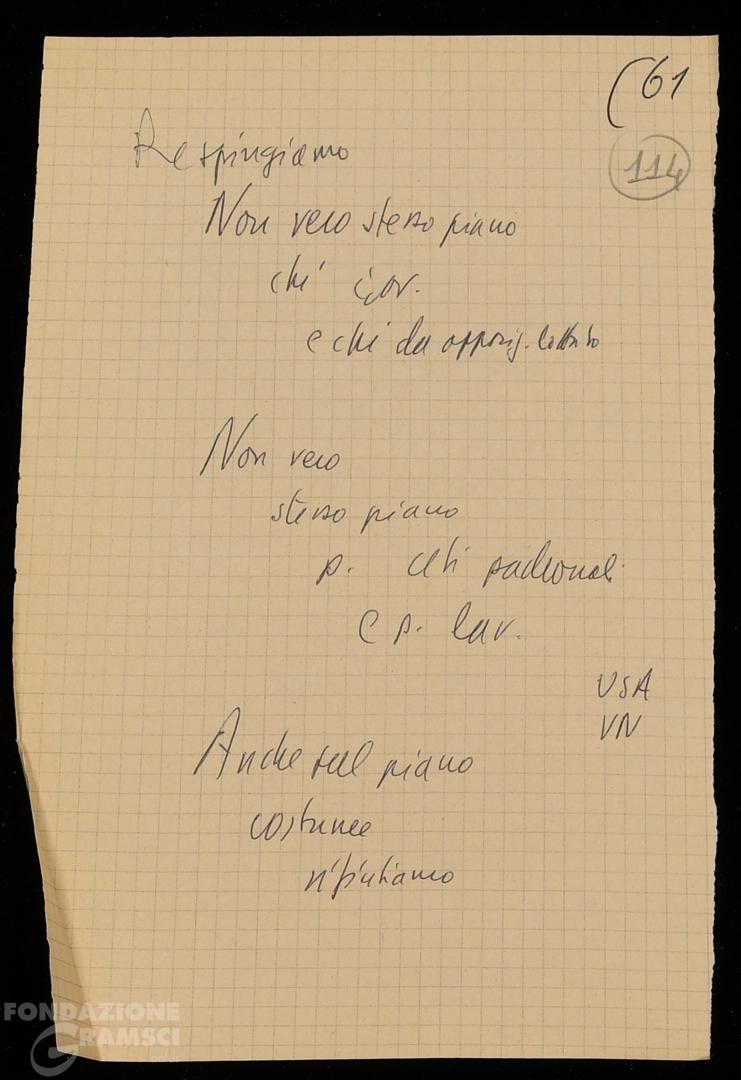 (61
114
Respingiamo
Non vero stesso piano
chi gov.
e chi da opposiz.
Non vero
stesso piano
p. ceti padronali
e p. lav.
USA
VN
Anche sul piano
costume
rifiutiamo
FONDAZIONE
GRAMSCI
onlus